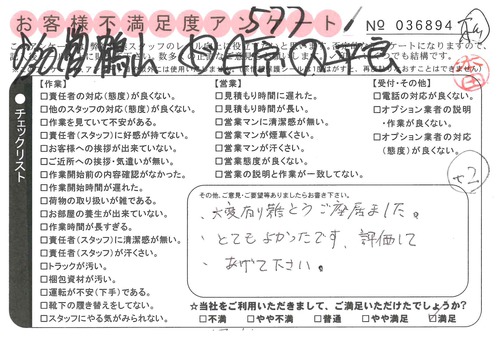 お客様不満足度アンケート
No 036894
577
チェックリスト
【作業】
□責任者の対応(態度)が良くない。
□他のスタッフの対応(態度)が良くない。
□作業を見ていて不安がある。
□責任者(スタッフ)に好感が持てない。
□お客様への挨拶が出来ていない。
□ご近所への挨拶・気遣いが無い。
□作業開始前の内容確認がなかった。
□作業開始時間が遅れた。
□荷物の取り扱いが雑である。
□お部屋の養生が出来ていない。
□作業時間が長すぎる。
□責任者(スタッフ)に清潔感が無い。
□責任者(スタッフ)が汗くさい。
□トラックが汚い。
□梱包資材が汚い。
□運転が不安(下手)である。
□靴下の履き替えをしてない。
□スタッフにやる気がみられない。
【営業】
□見積もり時間に遅れた。
□見積もり時間が長い。
□営業マンに清潔感が無い。
□営業マンが煙草くさい。
□営業マンが汗くさい。
□営業態度が良くない。
□営業の説明と作業が一致してない。
【受付・その他】
□電話の対応が良くない。
□オプション業者の説明
・作業が良くない。
□オプション業者の対応
(態度)が良くない。
その他、ご意見・ご要望等ありましたらお書き下さい。
・大変有り難とうご座居ました。
・とてもよかったです、評価して
・あげて下さい。
☆当社をご利用いただきまして、ご満足いただけたでしょうか?
□不満 □やや不満 □普通 □やや満足 ☑満足